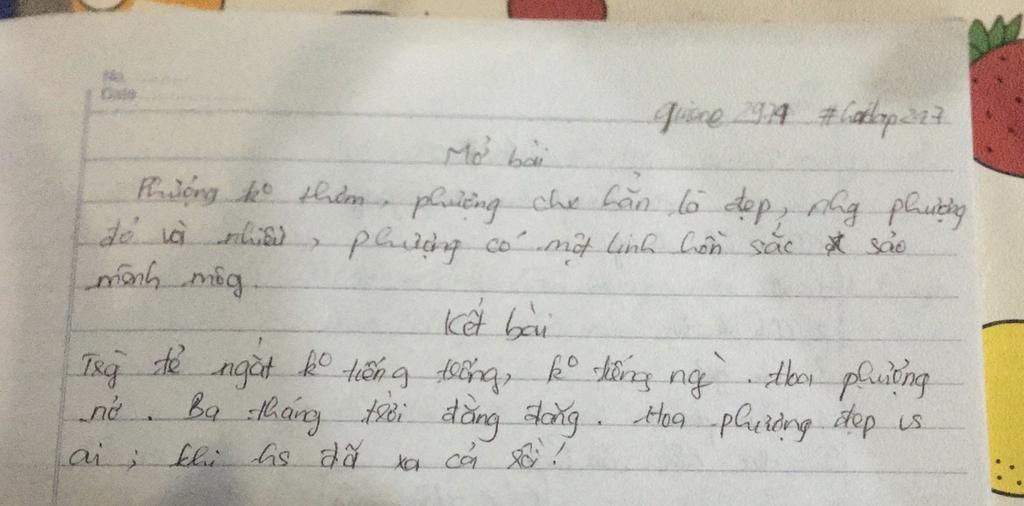 No.
Date
#hoctap247
Mở bài
Phượng kº thơm, phượng chưa hẳn là đẹp, nhg phượng
đỏ và nhiều, phượng có một linh hồn sắc sảo
mênh môg.
Kết bài
Trg tẻ ngắt kº tiếng trống, kº tiếng ng. Hoa phượng
nở. Ba tháng trời đằng đẵng. Hoa phượng đẹp vs
ai, khi hs đã xa cả rồi!